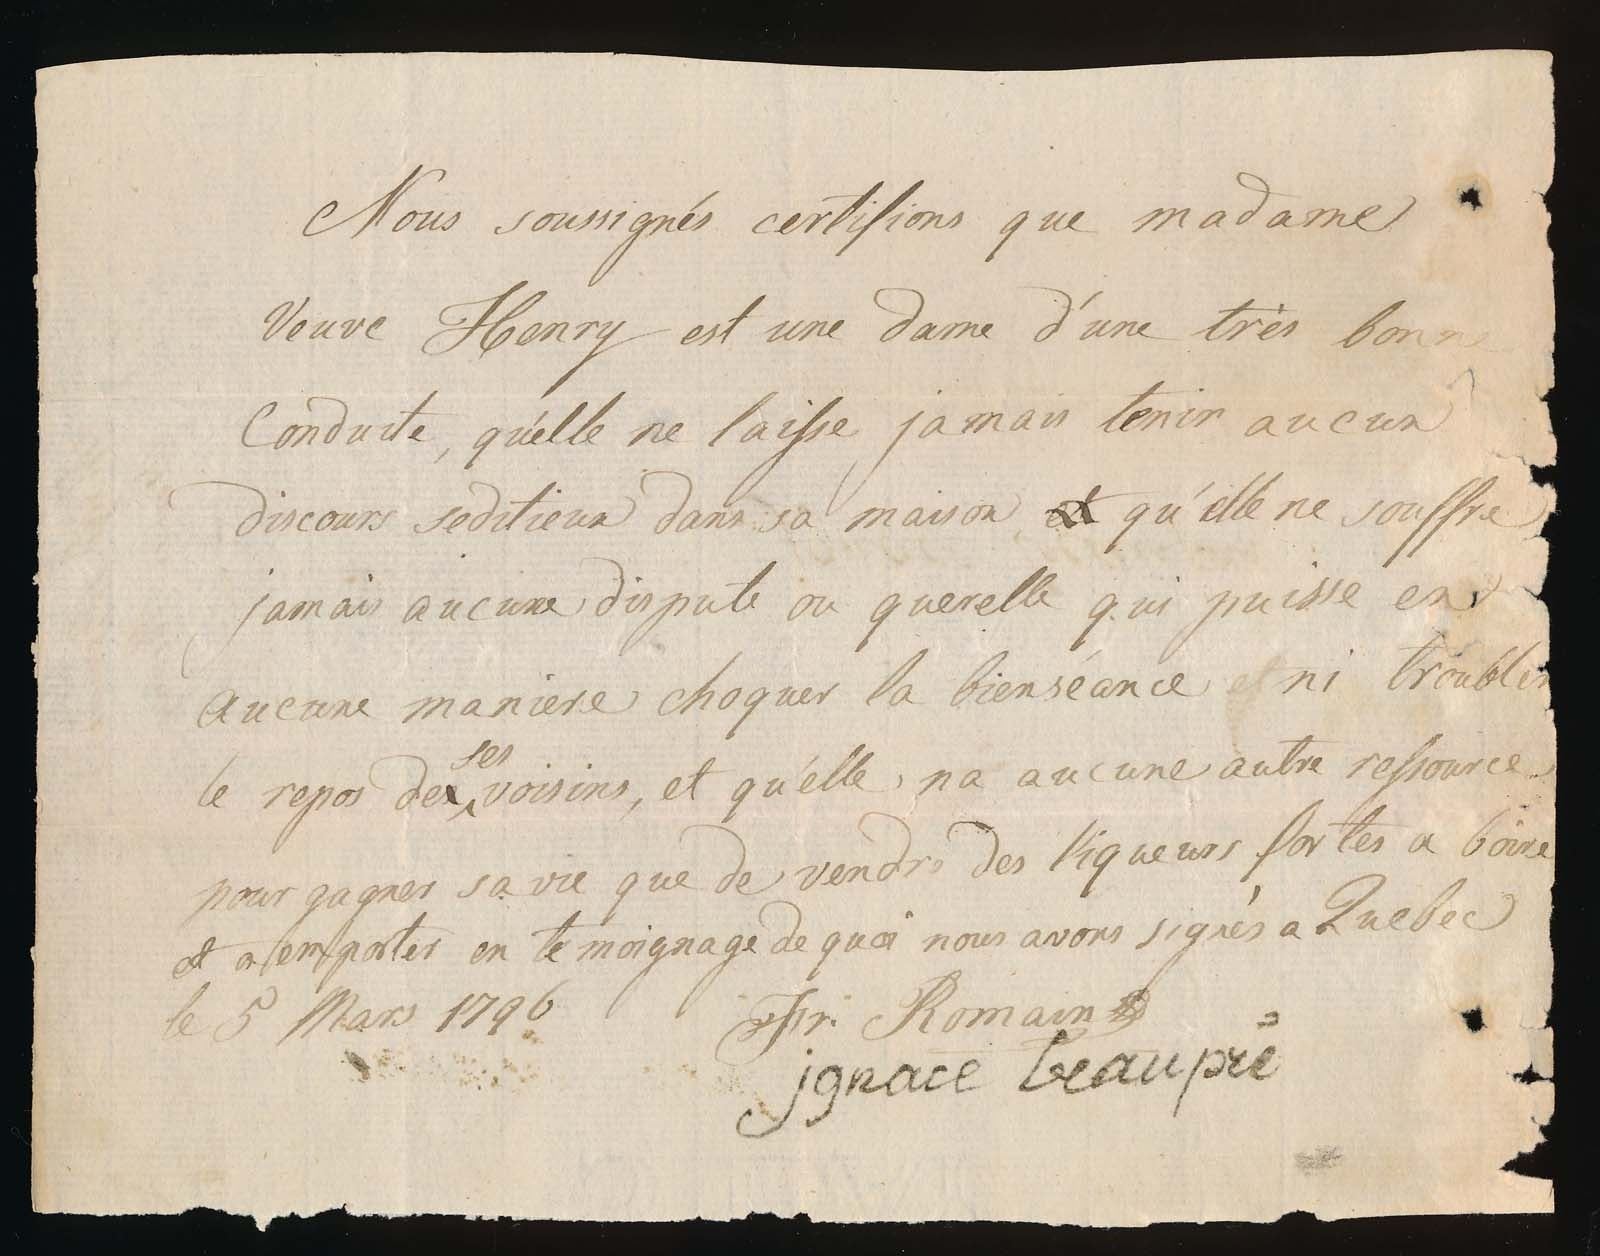 Nous soussignés certifions que madame
Veuve Henry est une dame d'une très bonne
Conduite, qu'elle ne laisse jamais tenir aucun
discours seditieux dans sa maison et qu'elle ne souffre
jamais aucune dispute ou querelle qui puisse en
aucune maniere choquer la bienséance ni troubler
le repos de ses voisins, et qu'elle na aucune autre ressource
pour gagner sa vie que de vendre des liqueurs fortes a boire
et a emporter en temoignage de quoi nous avons signés a Quebec
le 5 Mars 1796 Fr. Romain
jgnace beaupré